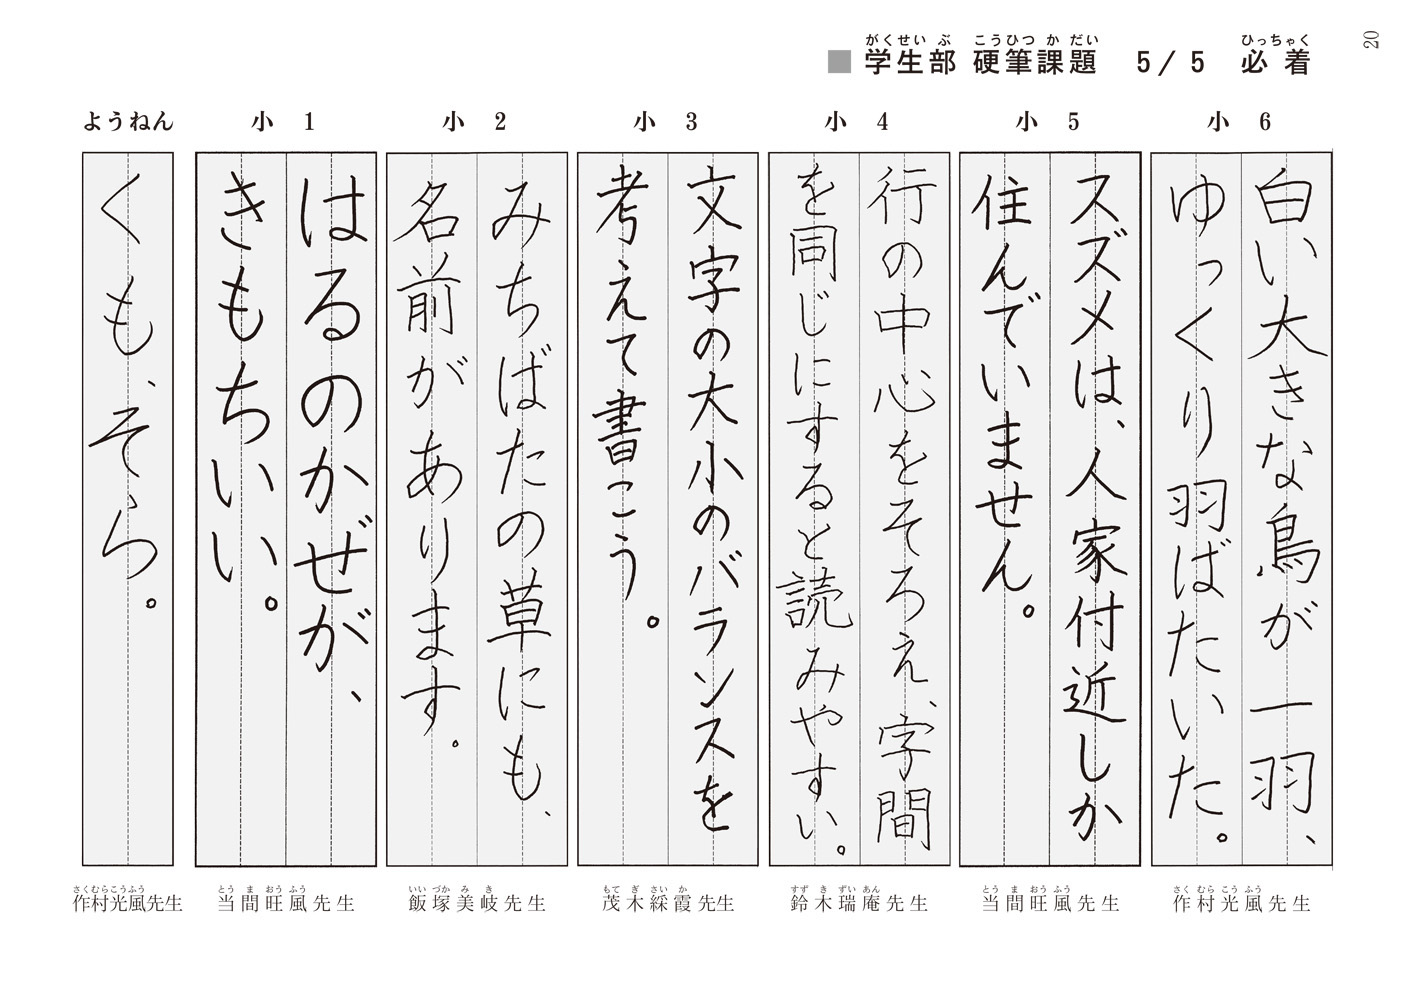 20
がくせいぶ こうひつかだい ひっちゃく
■ 学生部 硬筆課題 5/5 必着
小 6
白い大きな鳥が一羽、
ゆっくり羽ばたいた。
さくむらこうふう
作村光風先生
小 5
スズメは、人家付近しか
住んでいません。
とうまおうふう
当間旺風先生
小 4
行の中心をそろえ、字間
を同じにすると読みやすい。
すずきずいあん
鈴木瑞庵先生
小 3
文字の大小のバランスを
考えて書こう。
もてぎさいか
茂木綵霞先生
小 2
みちばたの草にも、
名前があります。
いいづかみき
飯塚美岐先生
小 1
はるのかぜが、
きもちいい。
とうまおうふう
当間旺風先生
ようねん
くも、そら。
さくむらこうふう
作村光風先生